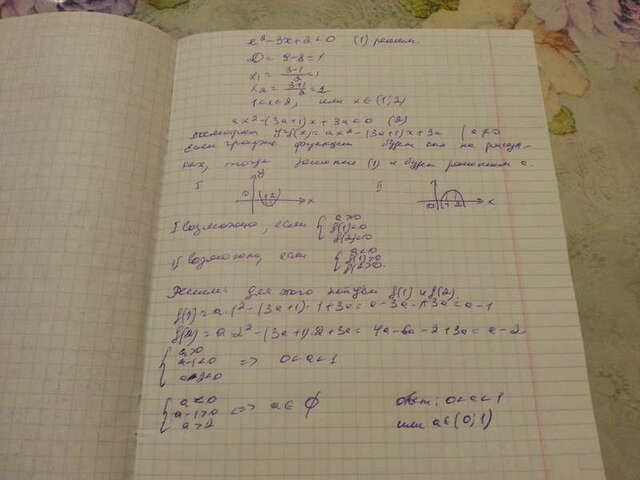 x²-3x+2<0 (1) решим.
D = 9-8=1
x₁ = (3-1)/2 = 1
x₂ = (3+1)/2 = 2
1<x<2, или x∈(1;2)
ax²-(3a+1)x+3a<0 (2)
y=f(x)=ax²-(3a+1)x+3a (a≠0
если график функции будет как на рисун-
ках, тогда решение (1) и будет решением
y
I II
0 1 2 x 0 1 2 x
I возможно, если { a>0 f(1)<0 f(2)<0
II возможно, если { a<0 f(1)>0 f(2)>0.
Решим: для этого найдем f(1) и f(2)
f(1)=a·1²-(3a+1)·1+3a=a-3a-1+3a=a-1
f(2)=a·2²-(3a+1)·2+3a=4a-6a-2+3a=a-2
{ a>0 a-1<0 a-2<0 => 0<a<1
{ a<0 a-1>0 a>2 => a∈ ∅
Ответ: 0<a<1
или a∈(0;1)